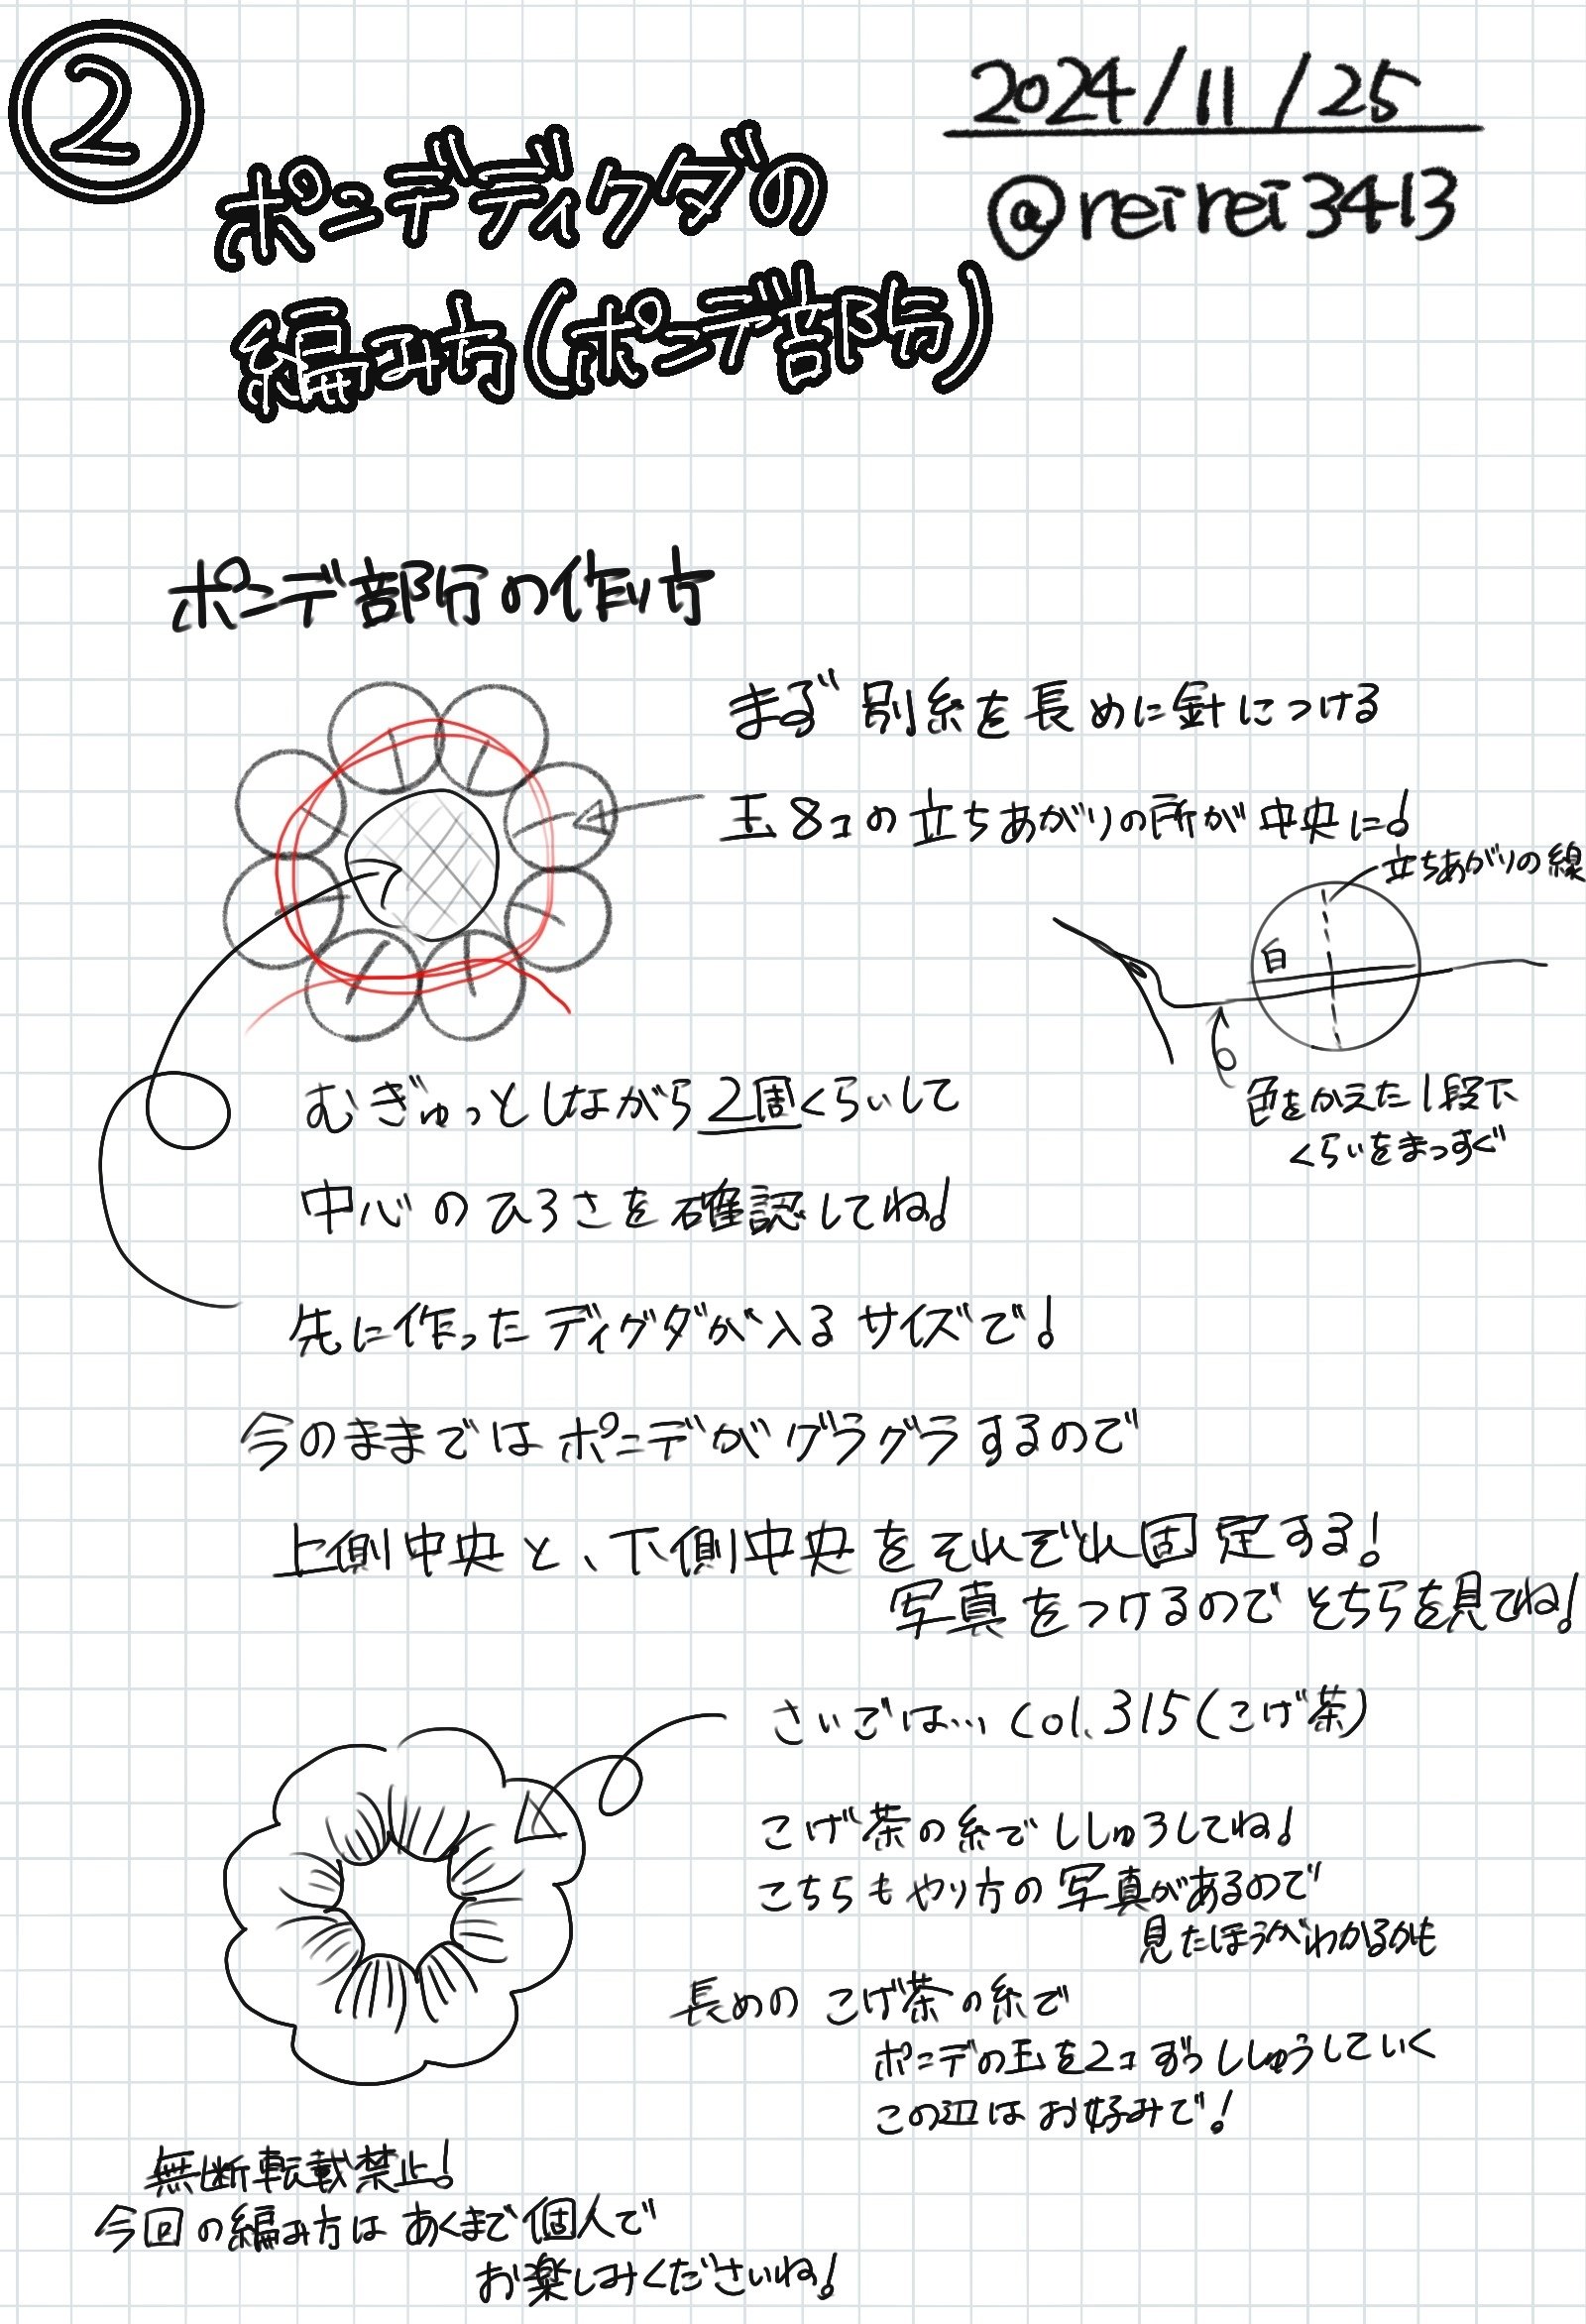 ②
2024/11/25
@reirei3413
ポンデディグダの
編み方(ポンデ部分)
ポンデ部分の作り方
まず 別糸を長めに針につける
玉8コの立ちあがりの所が中央に!
立ちあがりの線
白
色をかえた1段下
くらいをまっすぐ
むぎゅっとしながら2周くらいして
中心のひろさを確認してね!
先に作ったディグダが入るサイズで!
今のままではポンデがグラグラするので
上側中央と、下側中央をそれぞれ固定する!
写真をつけるのでそちらを見てね!
さいごは… Col.315(こげ茶)
こげ茶の糸でししゅうしてね!
こちらもやり方の写真があるので
見たほうがわかるかも
長めのこげ茶の糸で
ポンデの玉を2コずつししゅうしていく
この辺はお好みで!
無断転載禁止!
今回の編み方はあくまで個人で
お楽しみくださいね!